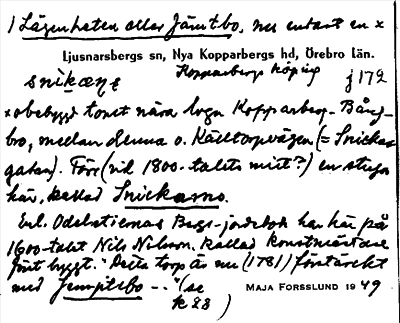 1 Lägenheten eller Jämtbo, nu endast en x
Ljusnarsbergs sn, Nya Kopparbergs hd, Örebro län.
Kopparbergs köping
j 172
x obebyggd tomt nära Kopparberg - Bång-
bro, mellan denna o. Källtorpsvägen (= Snickar-
gatan). Förr (vid 1800-talets mitt?) en stuga
här, kallad Snickarns.
Enl. Odelstiernas Bergs-jordebok har här på
1600-talet Nils Nilsson kallad konstmästare
först byggt. "Detta torp är nu (1781) förstärckt
med -.." (se
k 28 )
MAJA FORSSLUND 1949